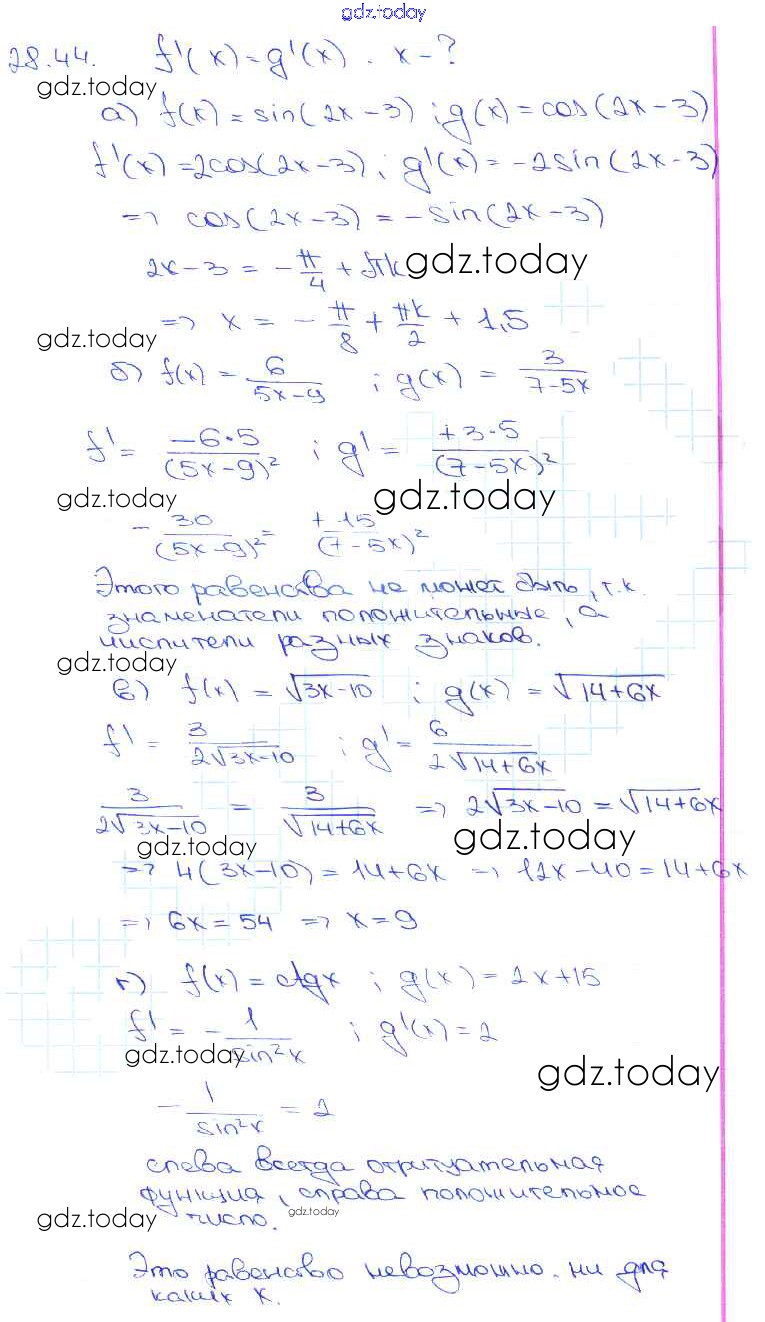 gdz.today
28.44. f'(x) = g'(x). x - ?
gdz.today
а) f(x) = sin(2x - 3) ; g(x) = cos(2x - 3)
f'(x) = 2cos(2x - 3) ; g'(x) = -2sin(2x - 3)
=> cos(2x - 3) = -sin(2x - 3)
2x - 3 = -π/4 + πk gdz.today
=> x = -π/8 + πk/2 + 1,5
gdz.today
б) f(x) = 6/(5x - 9) ; g(x) = 3/(7 - 5x)
f' = (-6·5)/(5x - 9)² ; g' = (+3·5)/(7 - 5x)²
gdz.today gdz.today
-30/(5x - 9)² = +15/(7 - 5x)²
Этого равенства не может быть, т.к.
знаменатели положительные, а
числители разных знаков.
gdz.today
в) f(x) = √(3x - 10) ; g(x) = √(14 + 6x)
f' = 3/(2√(3x - 10)) ; g' = 6/(2√(14 + 6x))
3/(2√(3x - 10)) = 3/√(14 + 6x) => 2√(3x - 10) = √(14 + 6x)
gdz.today gdz.today
=> 4(3x - 10) = 14 + 6x => 12x - 40 = 14 + 6x
=> 6x = 54 => x = 9
г) f(x) = ctgx ; g(x) = 2x + 15
f' = -1/sin²x ; g'(x) = 2
gdz.today gdz.today
-1/sin²x = 2
слева всегда отрицательная
функция, справа положительное
gdz.today число. gdz.today
Это равенство невозможно ни для
каких x.